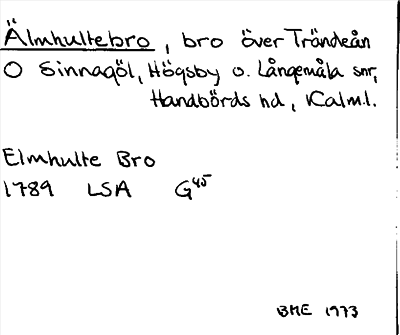 Älmhultebro, bro över Trändeån
O Sinnagöl, Högsby o. Långemåla snr,
Handbörds hd, Kalm.l.
Elmhulte Bro
1789 LSA G45
BME 1973